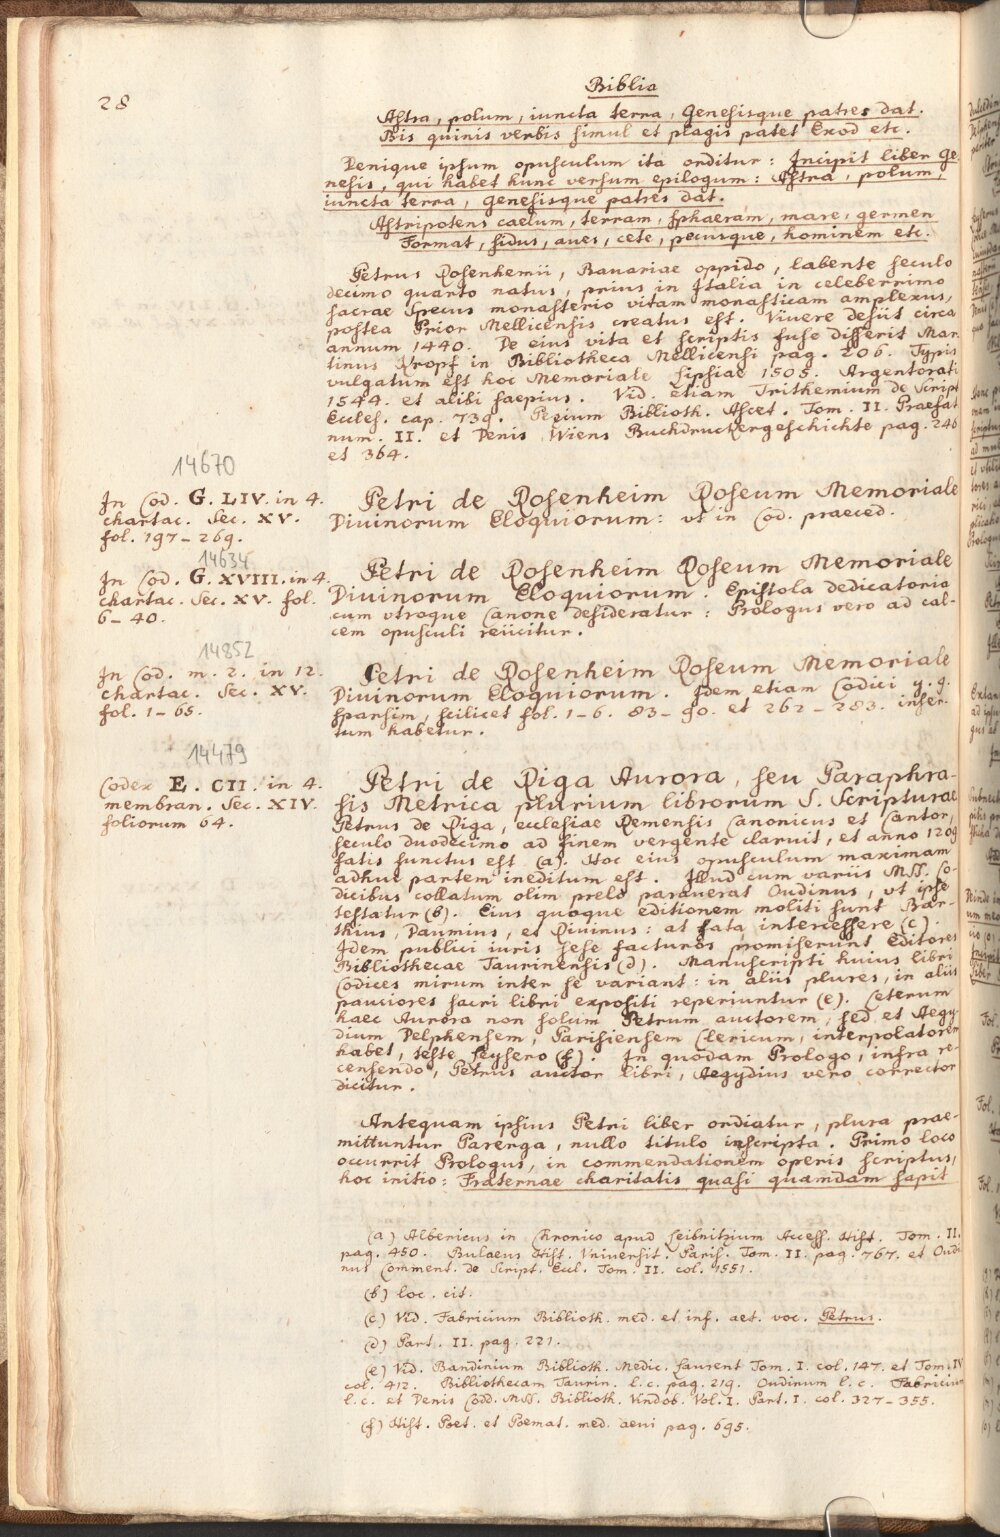 28
Biblia
Astra, polum, iuncta terra, Genesisque patres dat.
Bis quinis verbis simul et plagis patet Exod etc.
Denique ipsum opusculum ita orditur: Incipit liber Ge
nesis, qui habet hunc versum epilogum: Astra, polum,
iuncta terra, Genesisque patres dat.
Astripotens caelum, terram, sphaeram, mare, germen
Format, sidus, aues, cete, pecusque, hominem etc.
Petrus Rosenhemii, Bauariae oppido, labente seculo
decimo quarto natus, prius in Italia in celeberrimo
sacrae Specus monasterio vitam monasticam amplexus,
postea Prior Mellicensis creatus est. Viuere desiit circa
annum 1440. De eius vita et scriptis fuse disserit Mar
tinus Kropf in Bibliotheca Mellicensi pag. 206. Typis
vulgatum est hoc Memoriale Lipsiae 1505. Argentorati
1544. et alibi saepius. Vid. etiam Trithemium de Script
Eccles. cap. 739. Pezium Biblioth. Ascet. Tom. II. Praefat
num. II. et Denis Wiens Buchdruckergeschichte pag. 246
et 364.
14670
In Cod. G. LIV. in 4.
chartac. Sec. XV.
fol. 197-269.
Petri de Rosenheim Roseum Memoriale
Diuinorum Eloquiorum: vt in Cod. praeced.
14634
In Cod. G. XVIII. in 4.
chartac. Sec. XV. fol.
6-40.
Petri de Rosenheim Roseum Memoriale
Diuinorum Eloquiorum. Epistola dedicatoria
cum vtroque Canone desideratur: Prologus vero ad cal-
cem opusculi reiicitur.
14852
In Cod. m. 2. in 12.
chartac. Sec. XV.
fol. 1-65.
Petri de Rosenheim Roseum Memoriale
Diuinorum Eloquiorum. Idem etiam Codici y. 9.
sparsim, scilicet fol. 1-6. 83-90. et 262-283. inser-
tum habetur.
14479
Codex E. CII. in 4.
membran. Sec. XIV.
foliorum 64.
Petri de Riga Aurora, seu Paraphra-
sis Metrica plurium librorum S. Scripturae
Petrus de Riga, ecclesiae Remensis Canonicus et Cantor,
seculo duodecimo ad finem vergente claruit, et anno 1209
fatis functus est (a). Hoc eius opusculum maximam
adhuc partem ineditum est. Illud cum variis MSS. Co-
dicibus collatum olim prelo parauerat Oudinus, vt ipse
testatur (b). Eius quoque editionem moliti sunt Bar-
thius, Daumius, et Riuinus: at fata intercessere (c).
Idem publici iuris sese facturos promiserunt Editores
Bibliothecae Taurinensis (d). Manuscripti huius libri
Codices mirum inter se variant: in aliis plures, in aliis
pauciores sacri libri expositi reperiuntur (e). Ceterum
haec Aurora non solum Petrum auctorem, sed et Aegy-
dium Delphensem, Parisiensem Clericum, interpolatorem
habet, teste Leysero (f). In quodam Prologo, infra re-
censendo, Petrus auctor libri, Aegydius vero corrector
dicitur.
Antequam ipsius Petri liber ordiatur, plura prae-
mittuntur Parerga, nullo titulo inscripta. Primo loco
occurrit Prologus, in commendationem operis scriptus,
hoc initio: Fraternae charitatis quasi quamdam sapit
(a) Albericus in Chronico apud Leibnitzium Access. Hist. Tom. II.
pag. 450. Bulaeus Hist. Vniuersit. Paris. Tom. II. pag. 767. et Oudi
nus Comment. de Script. Eccl. Tom. II. col. 1551.
(b) loc. cit.
(c) Vid. Fabricium Biblioth. med. et inf. aet. voc. Petrus.
(d) Part. II. pag. 221.
(e) Vid. Bandinium Biblioth. Medic. Laurent Tom. I. col. 147. et Tom. IV
col. 412. Bibliothecam Taurin. l. c. pag. 219. Oudinum l. c. Fabricium
l. c. et Denis Codd. MSS. Biblioth. Vindob. Vol. I. Part. I. col. 327-355.
(f) Hist. Poet. et Poemat. med. aeui pag. 695.